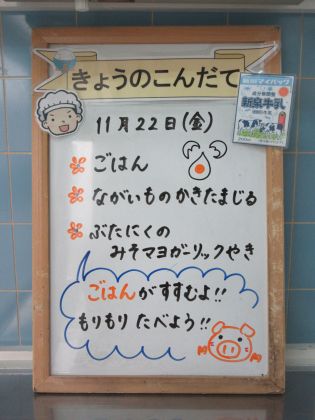 きょうのこんだて
11月22日(金)
ごはん
ながいものかきたまじる
ぶたにくの
みそマヨガーリックやき
ごはんがすすむよ!!
もりもり たべよう!!
新泉牛乳